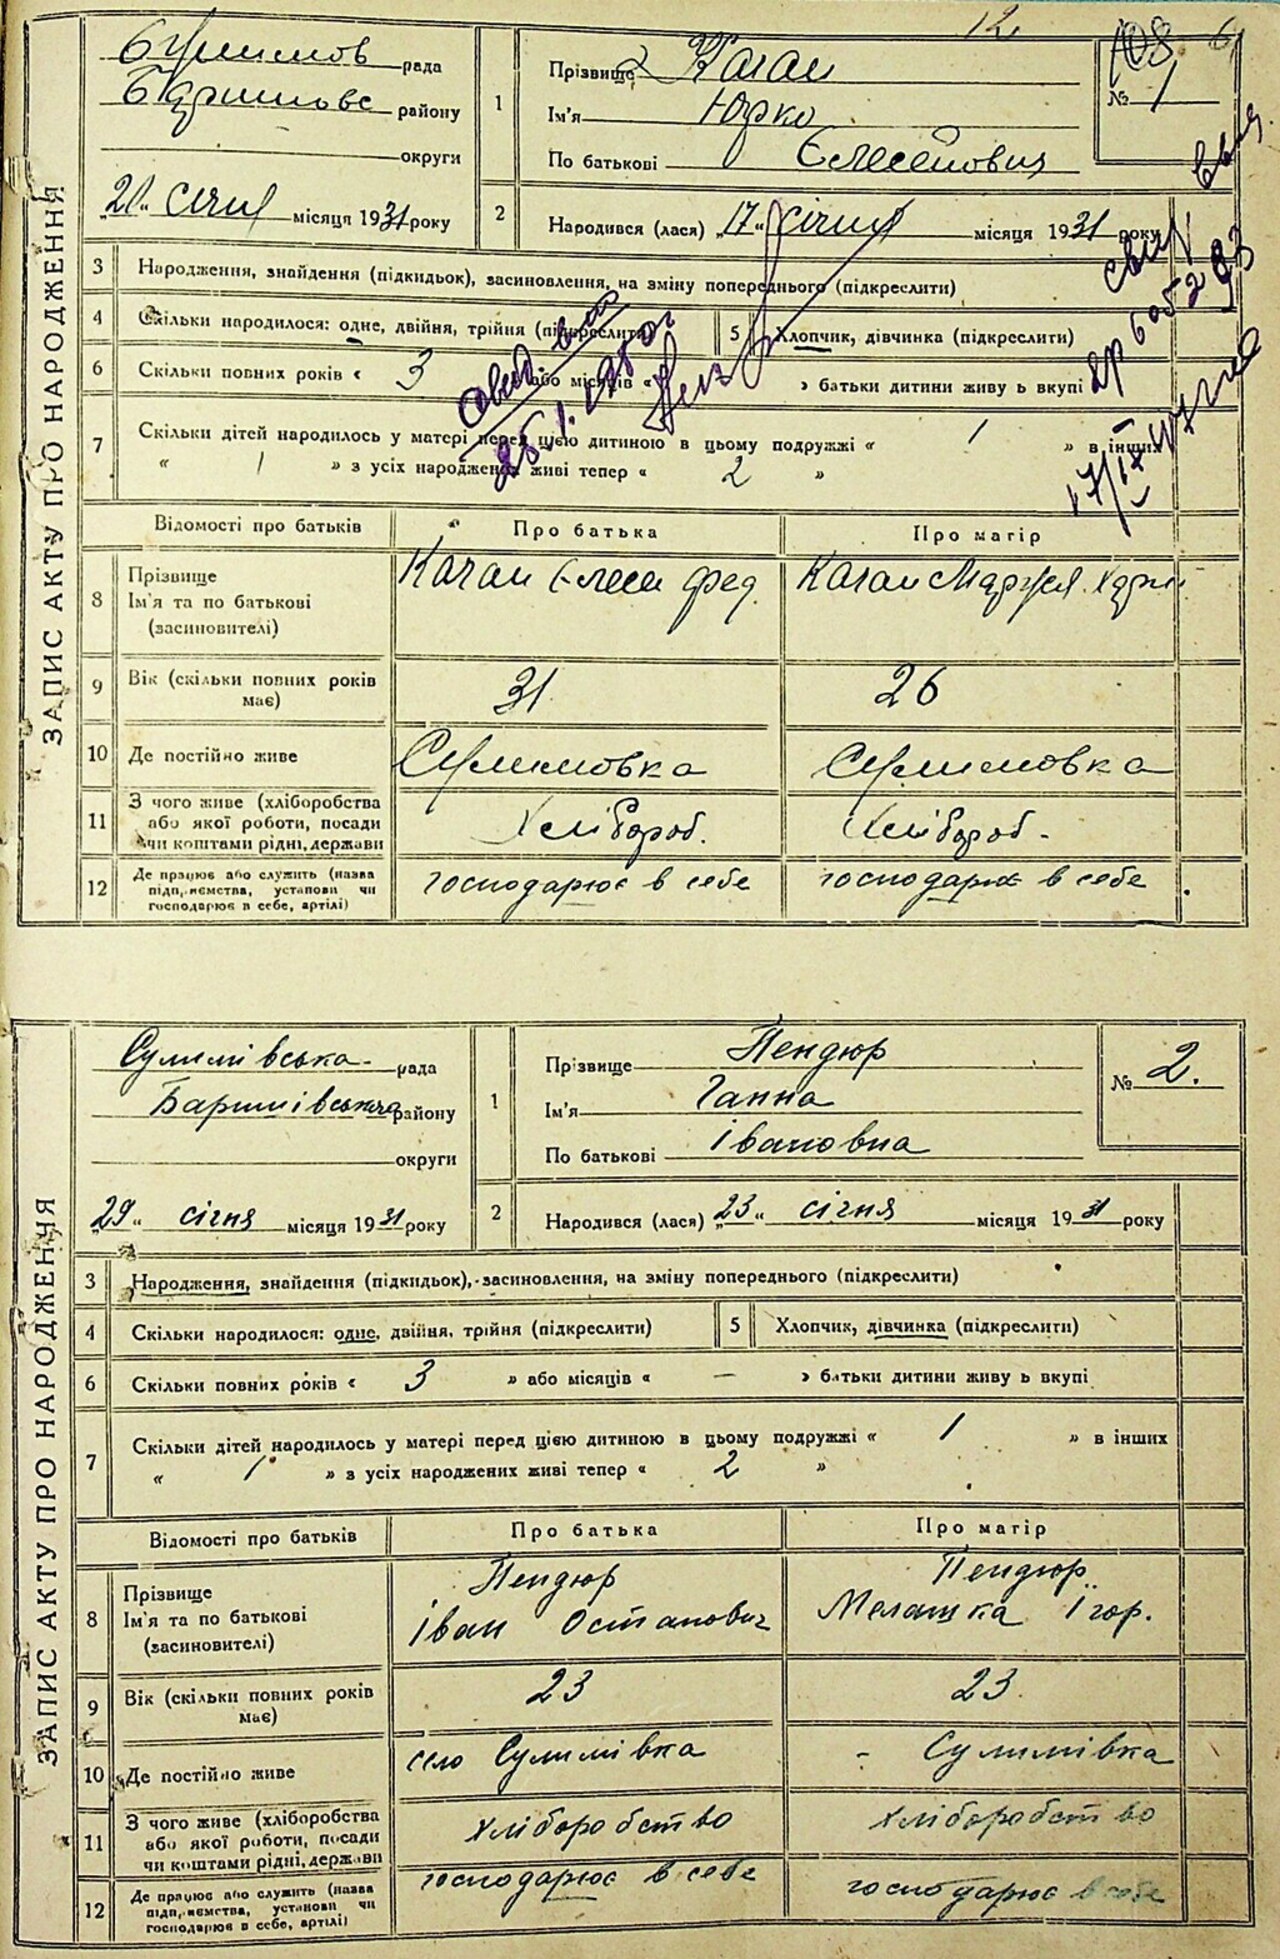 12
108 6
ЗАПИС АКТУ ПРО НАРОДЖЕННЯ
рада
району
округи
21 січня місяця 1931 року
1
Прізвище Качан
Ім'я Юрко
По батькові Єлесейович
№ 1
2
Народився (лася) „17“ січня місяця 1931 року
3 Народження, знайдення (підкидьок), засиновлення, на зміну попереднього (підкреслити)
4 Скільки народилося: одне, двійня, трійня (підкреслити)
5 Хлопчик, дівчинка (підкреслити)
6 Скільки повних років « 3 » або місяців « » батьки дитини живу ь вкупі
7 Скільки дітей народилось у матері перед цією дитиною в цьому подружжі « 1 » в інших
« 1 » з усіх народжених живі тепер « 2 »
Відомості про батьків
Про батька
Про матір
8 Прізвище
Ім'я та по батькові
(засиновителі)
Качан Єлесей Фед.
Качан
9 Вік (скільки повних років
має)
31
26
10 Де постійно живе
Сулимовка
Сулимовка
11 З чого живе (хліборобства
або якої роботи, посади
чи коштами рідні, держави
Хлібороб.
Хлібороб.
12 Де працює або служить (назва
підприємства, установи чи
господарює в себе, артілі)
господарює в себе
господарює в себе
ЗАПИС АКТУ ПРО НАРОДЖЕННЯ
Сулимівська рада
Баришівська району
округи
„29“ січня місяця 1931 року
1
Прізвище Пендюр
Ім'я Ганна
По батькові Івановна
№ 2.
2
Народився (лася) „23“ січня місяця 1931 року
3 Народження, знайдення (підкидьок), засиновлення, на зміну попереднього (підкреслити)
4 Скільки народилося: одне, двійня, трійня (підкреслити)
5 Хлопчик, дівчинка (підкреслити)
6 Скільки повних років « 3 » або місяців « — » батьки дитини живу ь вкупі
7 Скільки дітей народилось у матері перед цією дитиною в цьому подружжі « 1 » в інших
« 1 » з усіх народжених живі тепер « 2 »
Відомості про батьків
Про батька
Про матір
8 Прізвище
Ім'я та по батькові
(засиновителі)
Пендюр
Іван Остапович
Пендюр
Мелашка Ігор.
9 Вік (скільки повних років
має)
23
23
10 Де постійно живе
село Сулимівка
- Сулимівка
11 З чого живе (хліборобства
або якої роботи, посади
чи коштами рідні, держави
хліборобство
хліборобство
12 Де працює або служить (назва
підприємства, установи чи
господарює в себе, артілі)
господарює в себе
господарює в себе